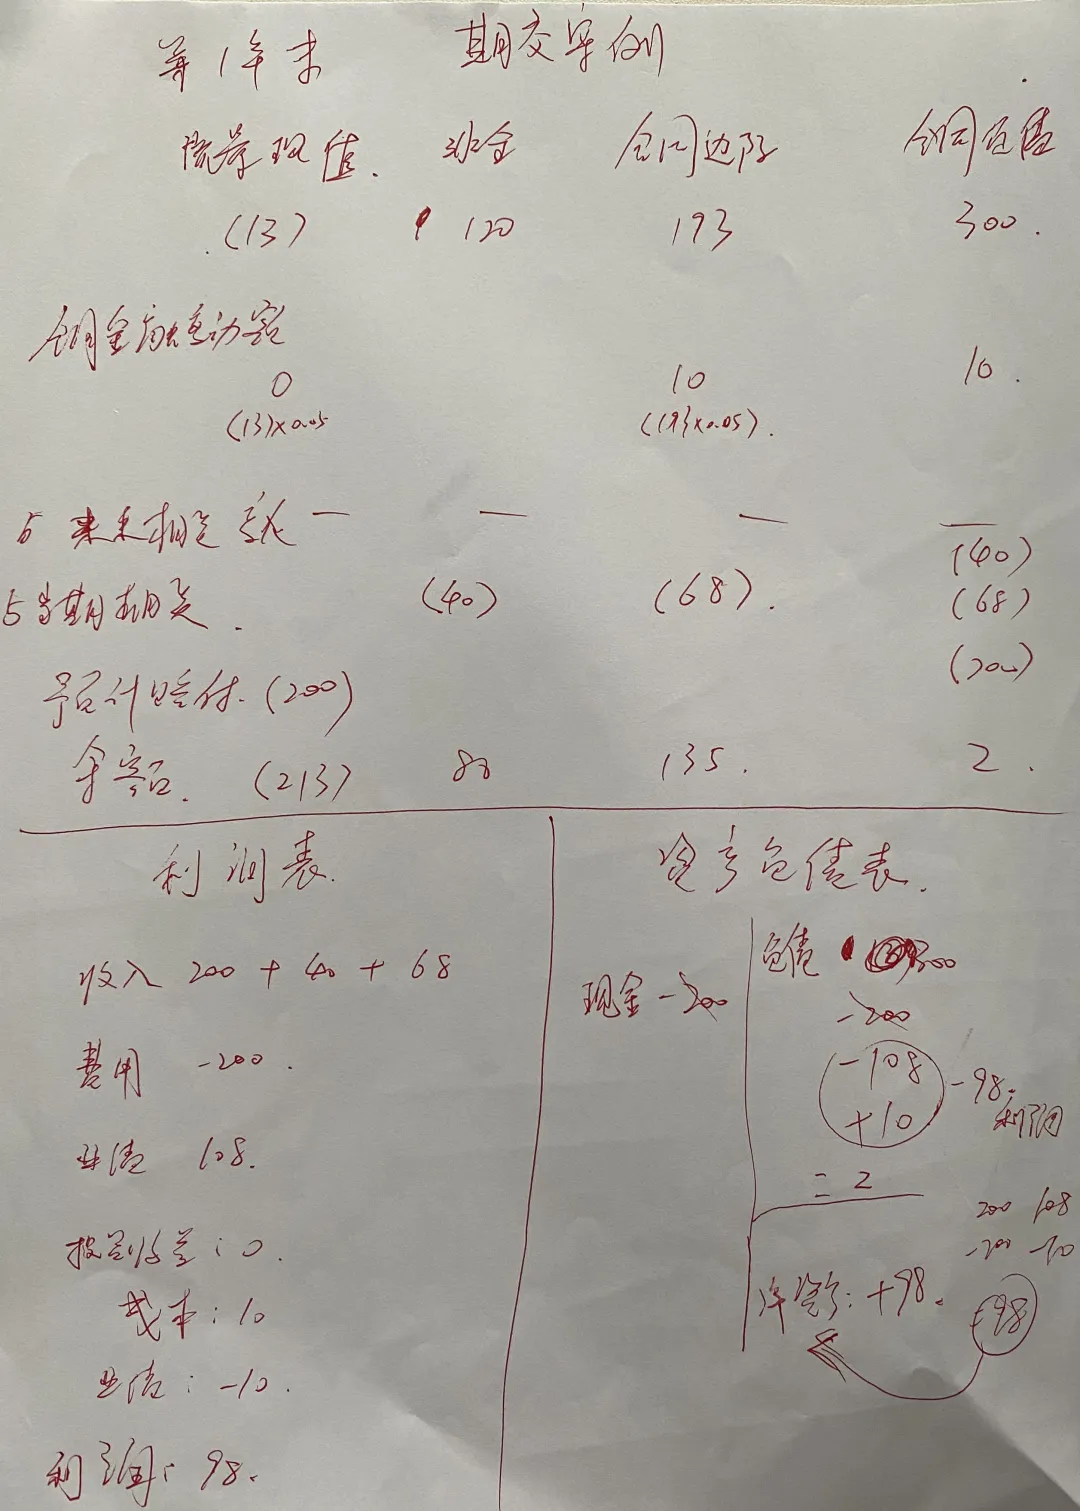 第1年末 期交案例
流量现值. 非金 合同边际 合同负债
(13) 120 193 300.
合同金融变动额
0 10 10.
(13)×0.05 (193×0.05).
与未来相关 — — — —
(40)
与当期相关. (40) (68). (68)
(200)
预计赔付. (200)
余额. (213) 80 135. 2.
利润表. 资产负债表.
收入 200 + 40 + 68
费用 -200.
业绩 108.
投资收益: 0.
成本: 10
业绩: -10.
利润: 98.
现金 -200
负债 300
-200
-108
+10
-98.
利润
= 2
200 108
-200 -10
净资产: +98.
98